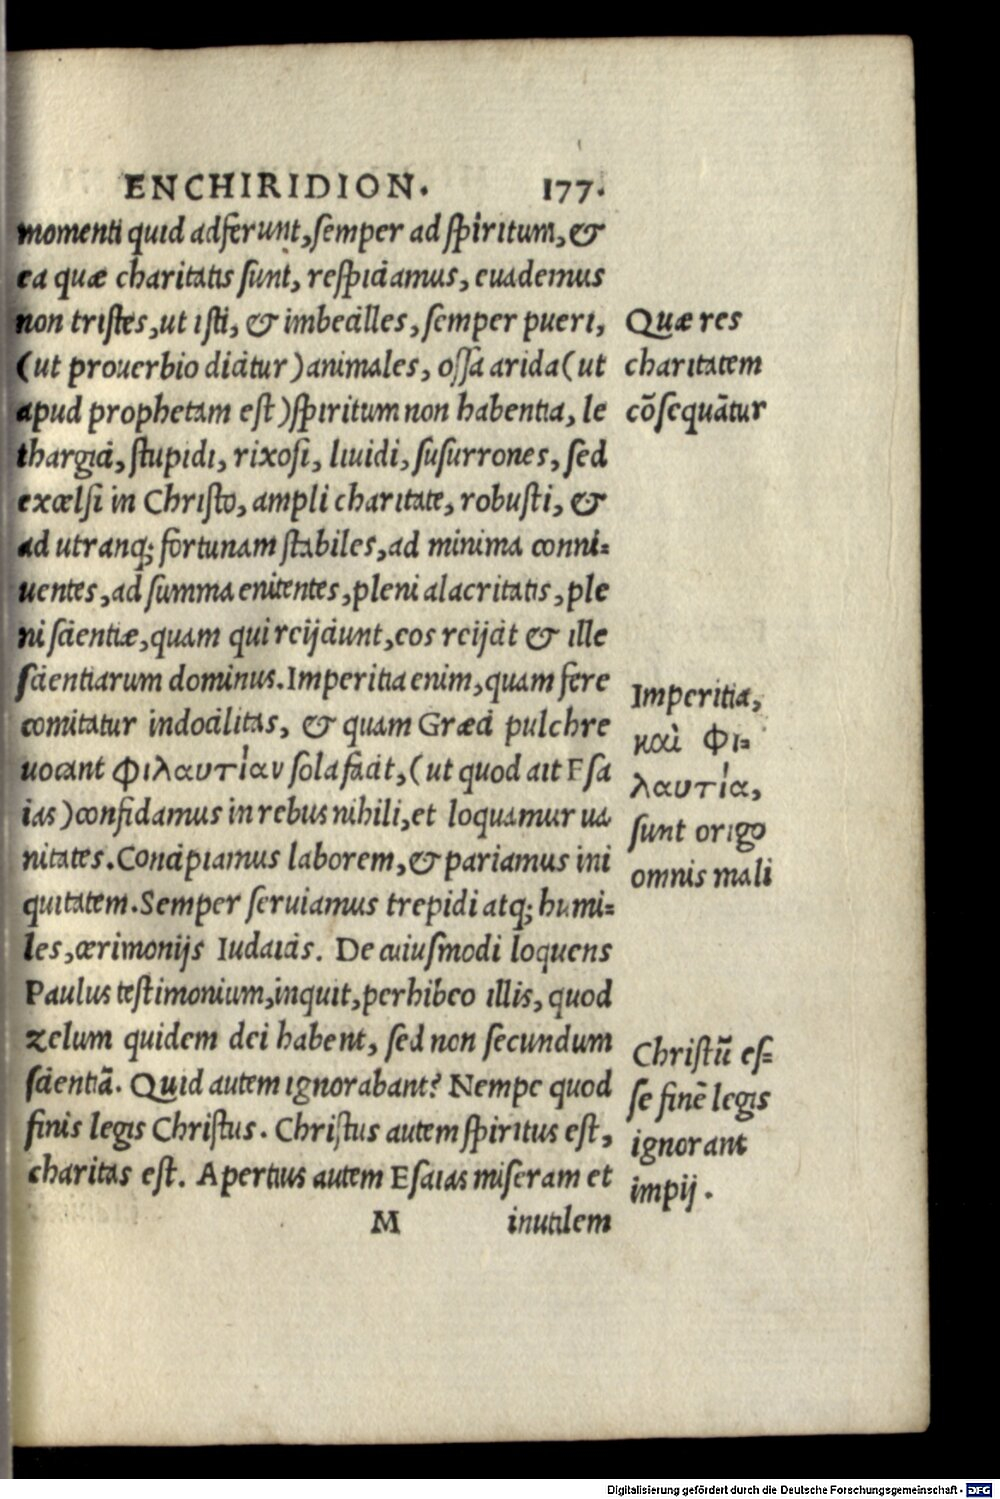 ENCHIRIDION. 177.
momenti quid adferunt, semper ad spiritum, &
ea quæ charitatis sunt, respiciamus, euademus
non tristes, ut isti, & imbecilles, semper pueri,
(ut prouerbio dicitur) animales, ossa arida (ut
apud prophetam est) spiritum non habentia, le
thargici, stupidi, rixosi, liuidi, susurrones, sed
excelsi in Christo, ampli charitate, robusti, &
ad utranq; fortunam stabiles, ad minima conni=
uentes, ad summa enitentes, pleni alacritatis, ple
ni scientiæ, quam qui reijciunt, eos reijcit & ille
scientiarum dominus. Imperitia enim, quam fere
comitatur indocilitas, & quam Græci pulchre
uocant φιλαυτίαν sola facit, (ut quod ait Esa
ias) confidamus in rebus nihili, et loquamur ua
nitates. Concipiamus laborem, & pariamus ini
quitatem. Semper seruiamus trepidi atq; humi=
les, cerimonijs Iudaicis. De cuiusmodi loquens
Paulus testimonium, inquit, perhibeo illis, quod
zelum quidem dei habent, sed non secundum
scientiã. Quid autem ignorabant? Nempe quod
finis legis Christus. Christus autem spiritus est,
charitas est. Apertius autem Esaias miseram et
M inutilem
Quæ res
charitatem
cõsequãtur
Imperitia,
καὶ φι=
λαυτία,
sunt origo
omnis mali
Christũ es=
se finẽ legis
ignorant
impij.
Digitalisierung gefördert durch die Deutsche Forschungsgemeinschaft - DFG